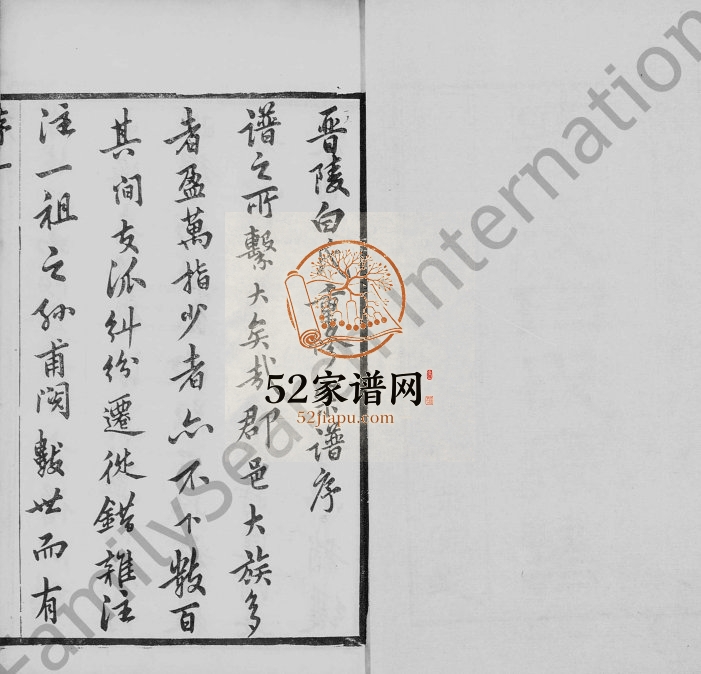 晋陵白氏重修宗譜序
譜之所繫大矣哉郡邑大族多
者盈萬指少者亦不下數百
其间支派糾紛遷徙錯雜注
注一祖之孙甫閱數世而有
序一
52家谱网
52jiapu.com
FamilySearch International